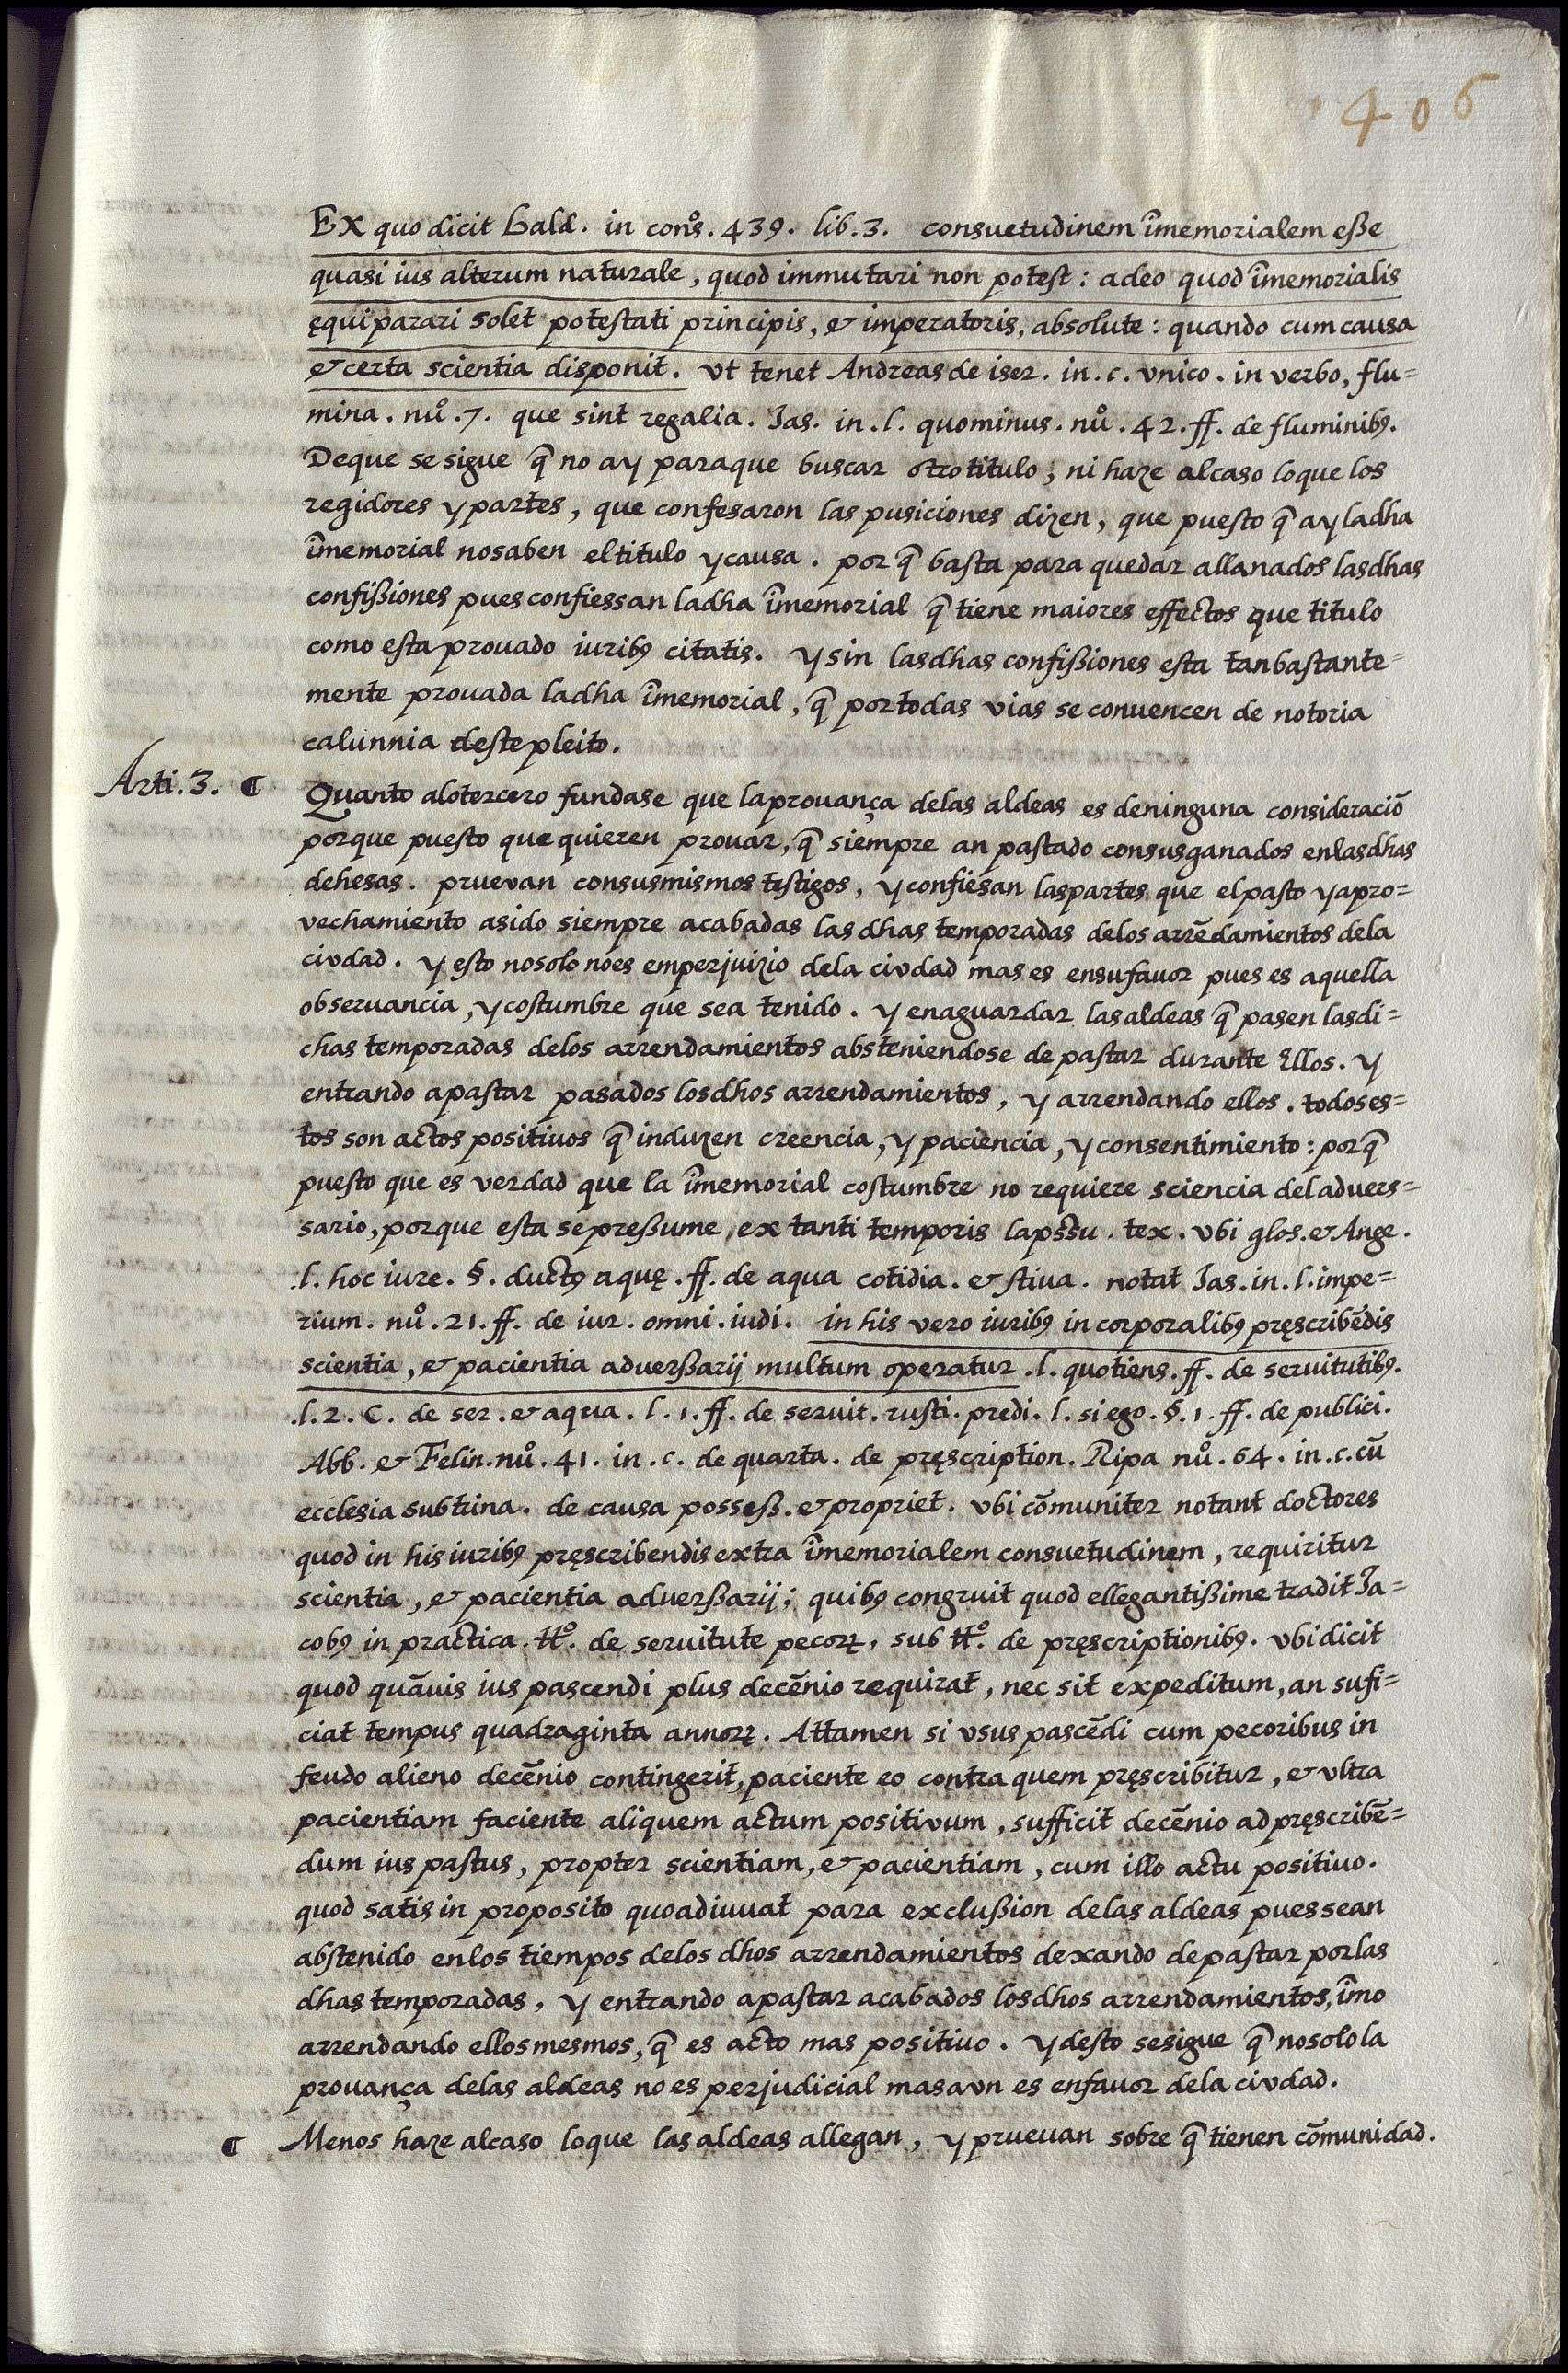 406
Ex quo dicit bald. in cons̊. 439. lib. 3. consuetudinem îmemorialem eße
quasi ius alterum naturale, quod immutari non potest: adeo quod îmemorialis
ęquiparari solet potestati principis, & imperatoris, absolute: quando cum causa
& certa scientia disponit. vt tenet Andreas de iser. in. c. vnico. in verbo, flu=
mina. nů. 7. que sint regalia. Ias. in. l. quominus. nů. 42. ff. de fluminibꝯ.
Deque se sigue q̃ no ay paraque buscar otro titulo, ni haze alcaso loque los
regidores y partes, que confesaron las pusiciones dizen, que puesto q̃ ay ladha
îmemorial nosaben el titulo y causa. por q̃ basta para quedar allanados lasdhas
confißiones pues confiessan ladha îmemorial q̃ tiene maiores effectos que titulo
como esta prouado iuribꝯ citatis. y sin lasdhas confißiones esta tanbastante=
mente prouada ladha îmemorial, q̃ por todas vias se conuencen de notoria
calunnia deste pleito.
Arti. 3. ¶ Quanto alotercero fundase que laprouança delas aldeas es deninguna consideraciõ
porque puesto que quieren prouar, q̃ siempre an pastado consusganados enlasdhas
dehesas. pruevan consusmismos testigos, y confiesan laspartes que elpasto yapro=
vechamiento asido siempre acabadas las dhas temporadas delos arrẽdamientos dela
civdad. y esto nosolo noes emperjuizio dela civdad mas es ensufauor pues es aquella
obseruancia, y costumbre que sea tenido. y enaguardar lasaldeas q̃ pasen lasdi=
chas temporadas delos arrendamientos absteniendose de pastar durante Ellos. y
entrando apastar pasados losdhos arrendamientos, y arrendando ellos. todoses=
tos son actos positiuos q̃ induzen creencia, y paciencia, y consentimiento: porq̃
puesto que es verdad que la îmemorial costumbre no requiere sciencia deladuers=
sario, porque esta sepreßume, ex tanti temporis lapssu. tex. vbi glos. & Ange.
l. hoc iure. §. ductꝯ aquę. ff. de aqua cotidia. & stiua. notat Ias. in. l. impe=
rium. nů. 21. ff. de iur. omni. iudi. in his vero iuribꝯ in corporalibꝯ pręscribẽdis
scientia, & pacientia aduerßarij multum operatur. l. quotiens. ff. de seruitutibꝯ.
.l. 2. C. de ser. & aqua. l. 1. ff. de seruit. rusti. predi. l. si ego. §. 1. ff. de publici.
Abb. & Felin. nů. 41. in. c. de quarta. de pręscription. Ripa nů. 64. in. c. cũ
ecclesia subtrina. de causa posseß. & propriet. vbi cõmuniter notant doctores
quod in his iuribꝯ pręscribendis extra îmemorialem consuetudinem, requiritur
scientia, & pacientia aduerßarij; quibꝯ congruit quod ellegantißime tradit Ia=
cobꝯ in practica. tt̊. de seruitute pecorꝝ. sub tt̊. de pręscriptionibꝯ. vbi dicit
quod quãuis ius pascendi plus decẽnio requirat, nec sit expeditum, an sufi=
ciat tempus quadraginta annorꝝ. Attamen si vsus pascẽdi cum pecoribus in
feudo alieno decẽnio contingerit, paciente eo contra quem pręscribitur, & vltra
pacientiam faciente aliquem actum positivum, sufficit decẽnio ad pręscribẽ=
dum ius pastus, propter scientiam, & pacientiam, cum illo actu positiuo.
quod satis in proposito quoadiuuat para exclußion delas aldeas pues sean
abstenido enlos tiempos delos dhos arrendamientos dexando depastar porlas
dhas temporadas, y entrando apastar acabados losdhos arrendamientos, îmo
arrendando ellos mesmos, q̃ es acto mas positiuo. y desto sesigue q̃ nosolo la
prouança delas aldeas no es perjudicial mas avn es enfauor dela civdad.
¶ Menos haze alcaso loque las aldeas allegan, y prueuan sobre q̃ tienen cõmunidad.